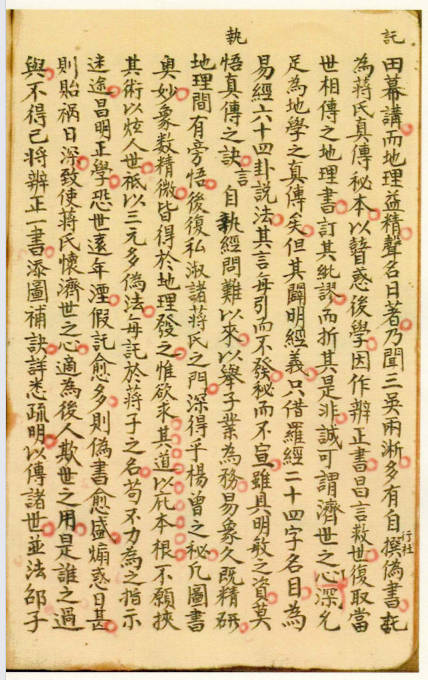 託
田幕講而地理益精聲名日著乃聞三吳兩淅多有自撰偽書託
行社
為蔣氏真傳秘本以瞽惑後學因作辨正書曰言救世復取當
世相傳之地理書訂其紕謬而折其是非誠可謂濟世之心深允
足為地學之真傳矣但其闢明經義只借羅經二十四字名目為
易經六十四卦說法其言每引而不發秘而不宣雖具明敏之資莫
執
悟真傳之訣言自執經問難以來以舉子業為務易象久既精研
地理間有旁悟後復私淑諸蔣氏之門深得乎楊曾之秘凡圖書
奧妙象数精微皆得於地理發之惟欲求其道以庇本根不願挾
其術以炫人世祗以三元多偽法每託於蔣子之名苟不力為之指示
迷途昌明正學恐世遠年湮假託愈多則偽書愈盛煽惑日甚
則貽禍日深致使蔣氏懷濟世之心適為後人欺世之用是誰之過
與不得已將辨正一書添圖補訣詳悉疏明以傳諸世並法邵子